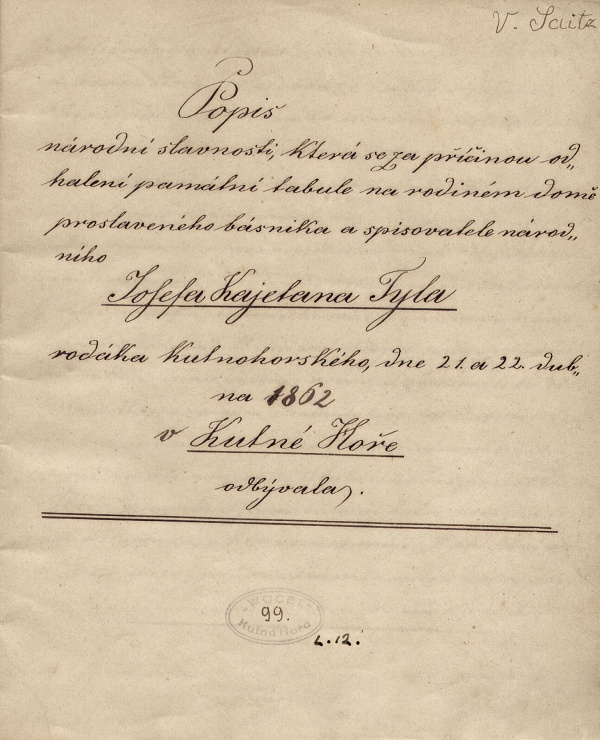 V. Saitz
Popis
národní slavnosti, která se za příčinou od„
halení památní tabule na rodiném domě
proslaveného básnika a spisovatele národ„
ního
Josefa Kajetana Tyla
rodáka Kutnohorského, dne 21. a 22. dub„
na 1862
v Kutné Hoře
odbývala.
„WOCEL"
99.
Kutná Hora
L. 12.